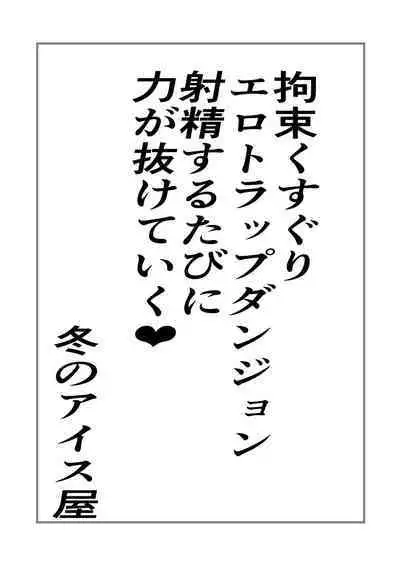 拘束くすぐり
エロトラップダンジョン
射精するたびに
力が抜けていく❤
冬のアイス屋